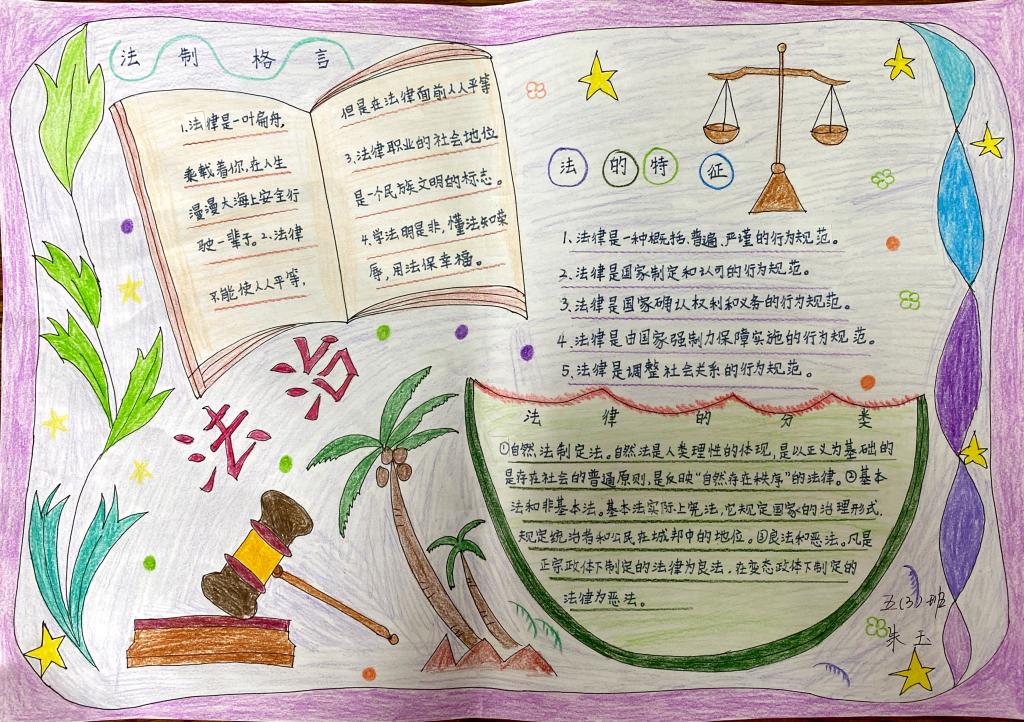 法制格言
1.法律是一叶扁舟,
乘载着你,在人生
漫漫大海上安全行
驶一辈子。2.法律
不能使人人平等,
但是在法律面前人人平等
3.法律职业的社会地位
是一个民族文明的标志。
4.学法明是非,懂法知荣
辱,用法保幸福。
法的特征
1.法律是一种概括、普遍、严谨的行为规范。
2.法律是国家制定和认可的行为规范。
3.法律是国家确认权利和义务的行为规范。
4.法律是由国家强制力保障实施的行为规范。
5.法律是调整社会关系的行为规范。
法治
法律的分类
①自然法制定法。自然法是人类理性的体现,是以正义为基础的
是存在社会的普遍原则,是反映“自然存在秩序”的法律。②基本
法和非基本法。基本法实际上宪法,它规定国家的治理形式,
规定统治者和公民在城邦中的地位。③良法和恶法。凡是
正宗政体下制定的法律为良法,在变态政体下制定的
法律为恶法。
五(3)班
朱玉